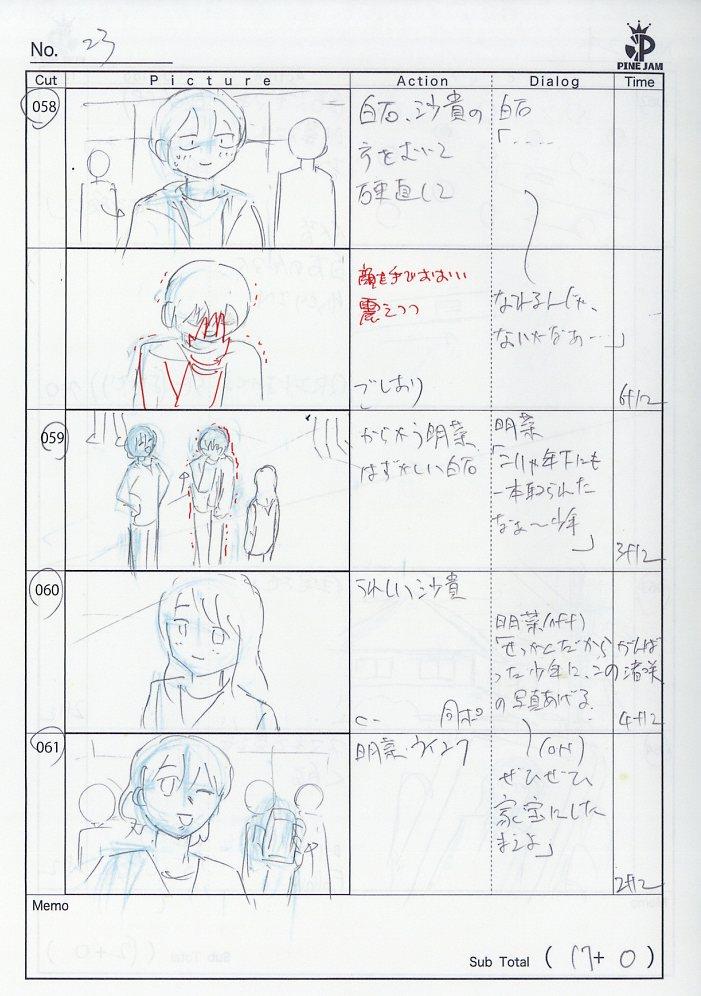 No. 23
PINE JAM
Cut Picture Action Dialog Time
058
白石、沙貴の
方をむいて
硬直して
白石
「....
顔を手でおおい
震えつつ
ごしおり
なれるんじゃ
ないかなあ…」
6+12
059
からかう明菜
はずかしい白石
明菜
「こりゃ年下にも
一本取られた
なぁ〜少年
」
3+12
060
うれしい沙貴
明菜(off)
「せっかくだから がんば
った少年に、この渚咲
の写真あげる
4+12
061
明菜、ウインク
(ON)
ぜひぜひ
家宝にした
まえよ」
2+12
Memo
Sub Total ( 17+ 0 )